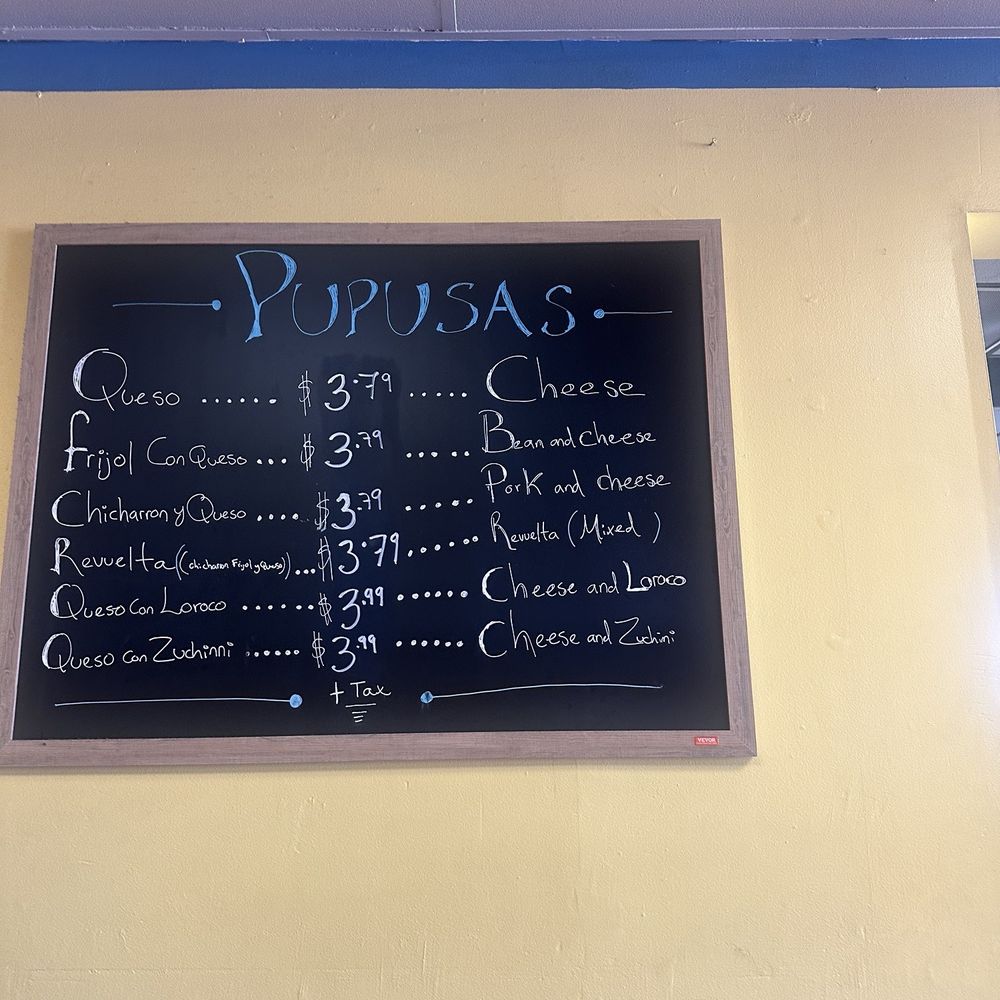 PUPUSAS
Queso ...... $3.79 ..... Cheese
Frijol Con Queso ... $3.79 ..... Bean and cheese
Chicharron y Queso .... $3.79 ..... Pork and cheese
Revuelta ((chicharron Frijol y Queso)) ... $3.79 ...... Revuelta (Mixed)
Queso Con Loroco ...... $3.99 ...... Cheese and Loroco
Queso con Zuchinni ...... $3.99 ...... Cheese and Zuchini
+ Tax
VEVOR